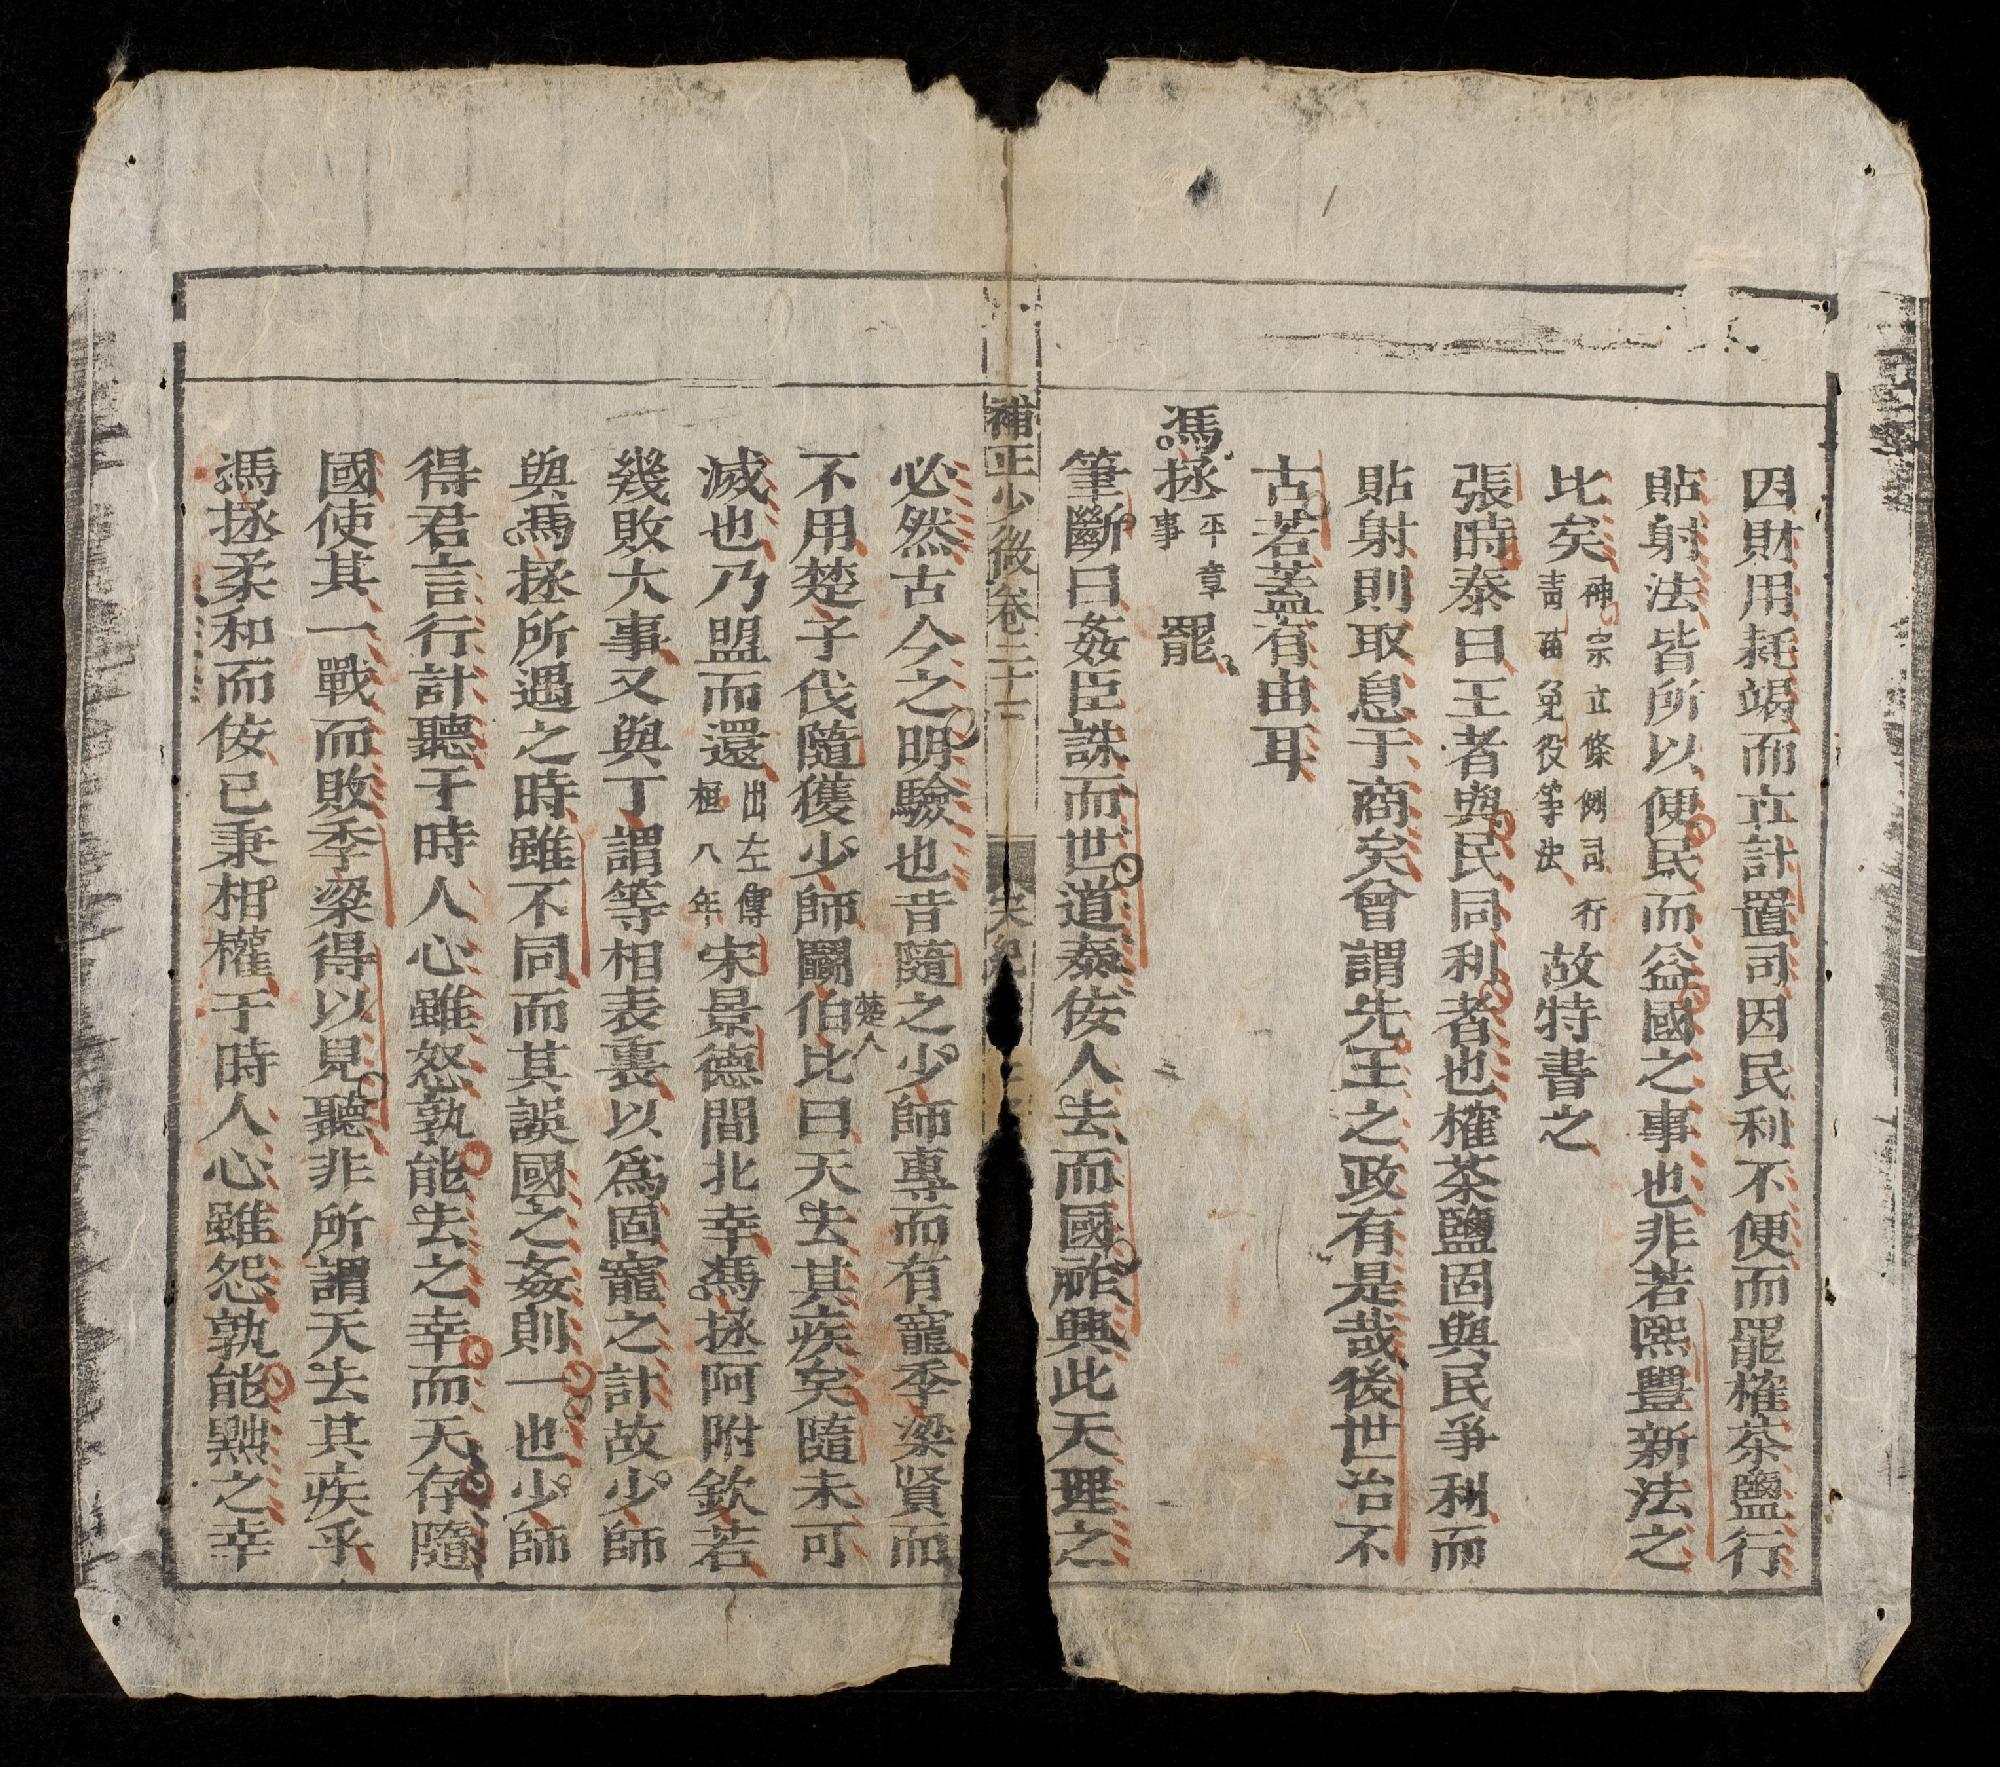 因財用耗竭而立計置司因民利不便而罷榷茶鹽行
貼射法皆所以便民而益國之事也非若熙豐新法之
比矣神宗立條例司行青苗免役等法故特書之
張時泰曰王者與民同利者也榷茶鹽固與民爭利而
貼射則取息于商矣曾謂先王之政有是哉後世治不
古若蓋有由耳
馮拯平章事罷
筆斷曰姦臣誅而世道泰侫人去而國祚興此天理之
補正少微卷二十二
宋紀
必然古今之明驗也昔隨之少師專而有寵季梁賢而
不用楚子伐隨獲少師鬬伯比曰天去其疾矣隨未可
楚人
滅也乃盟而還出左傳桓八年宋景德間北幸馮拯阿附欽若
幾敗大事又與丁謂等相表裏以爲固寵之計故少師
與馮拯所遇之時雖不同而其誤國之姦則一也少師
得君言行計聽于時人心雖怒孰能去之幸而天存隨
國使其一戰而敗季梁得以見聽非所謂天去其疾乎
馮拯柔和而侫已秉相權于時人心雖怨孰能黜之幸